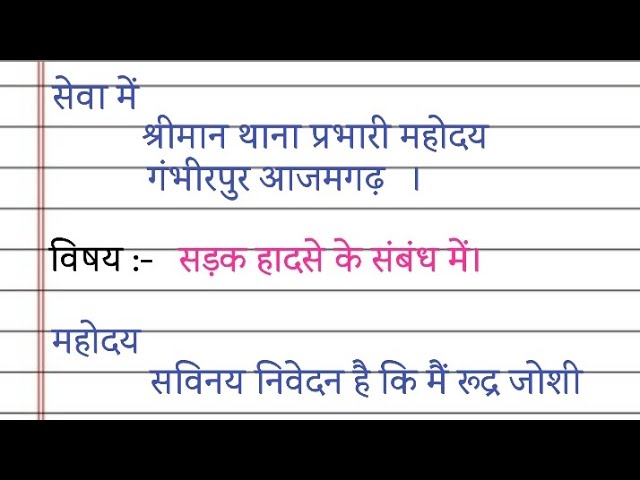 सेवा में
श्रीमान थाना प्रभारी महोदय
गंभीरपुर आजमगढ़ ।
विषय :- सड़क हादसे के संबंध में।
महोदय
सविनय निवेदन है कि मैं रूद्र जोशी